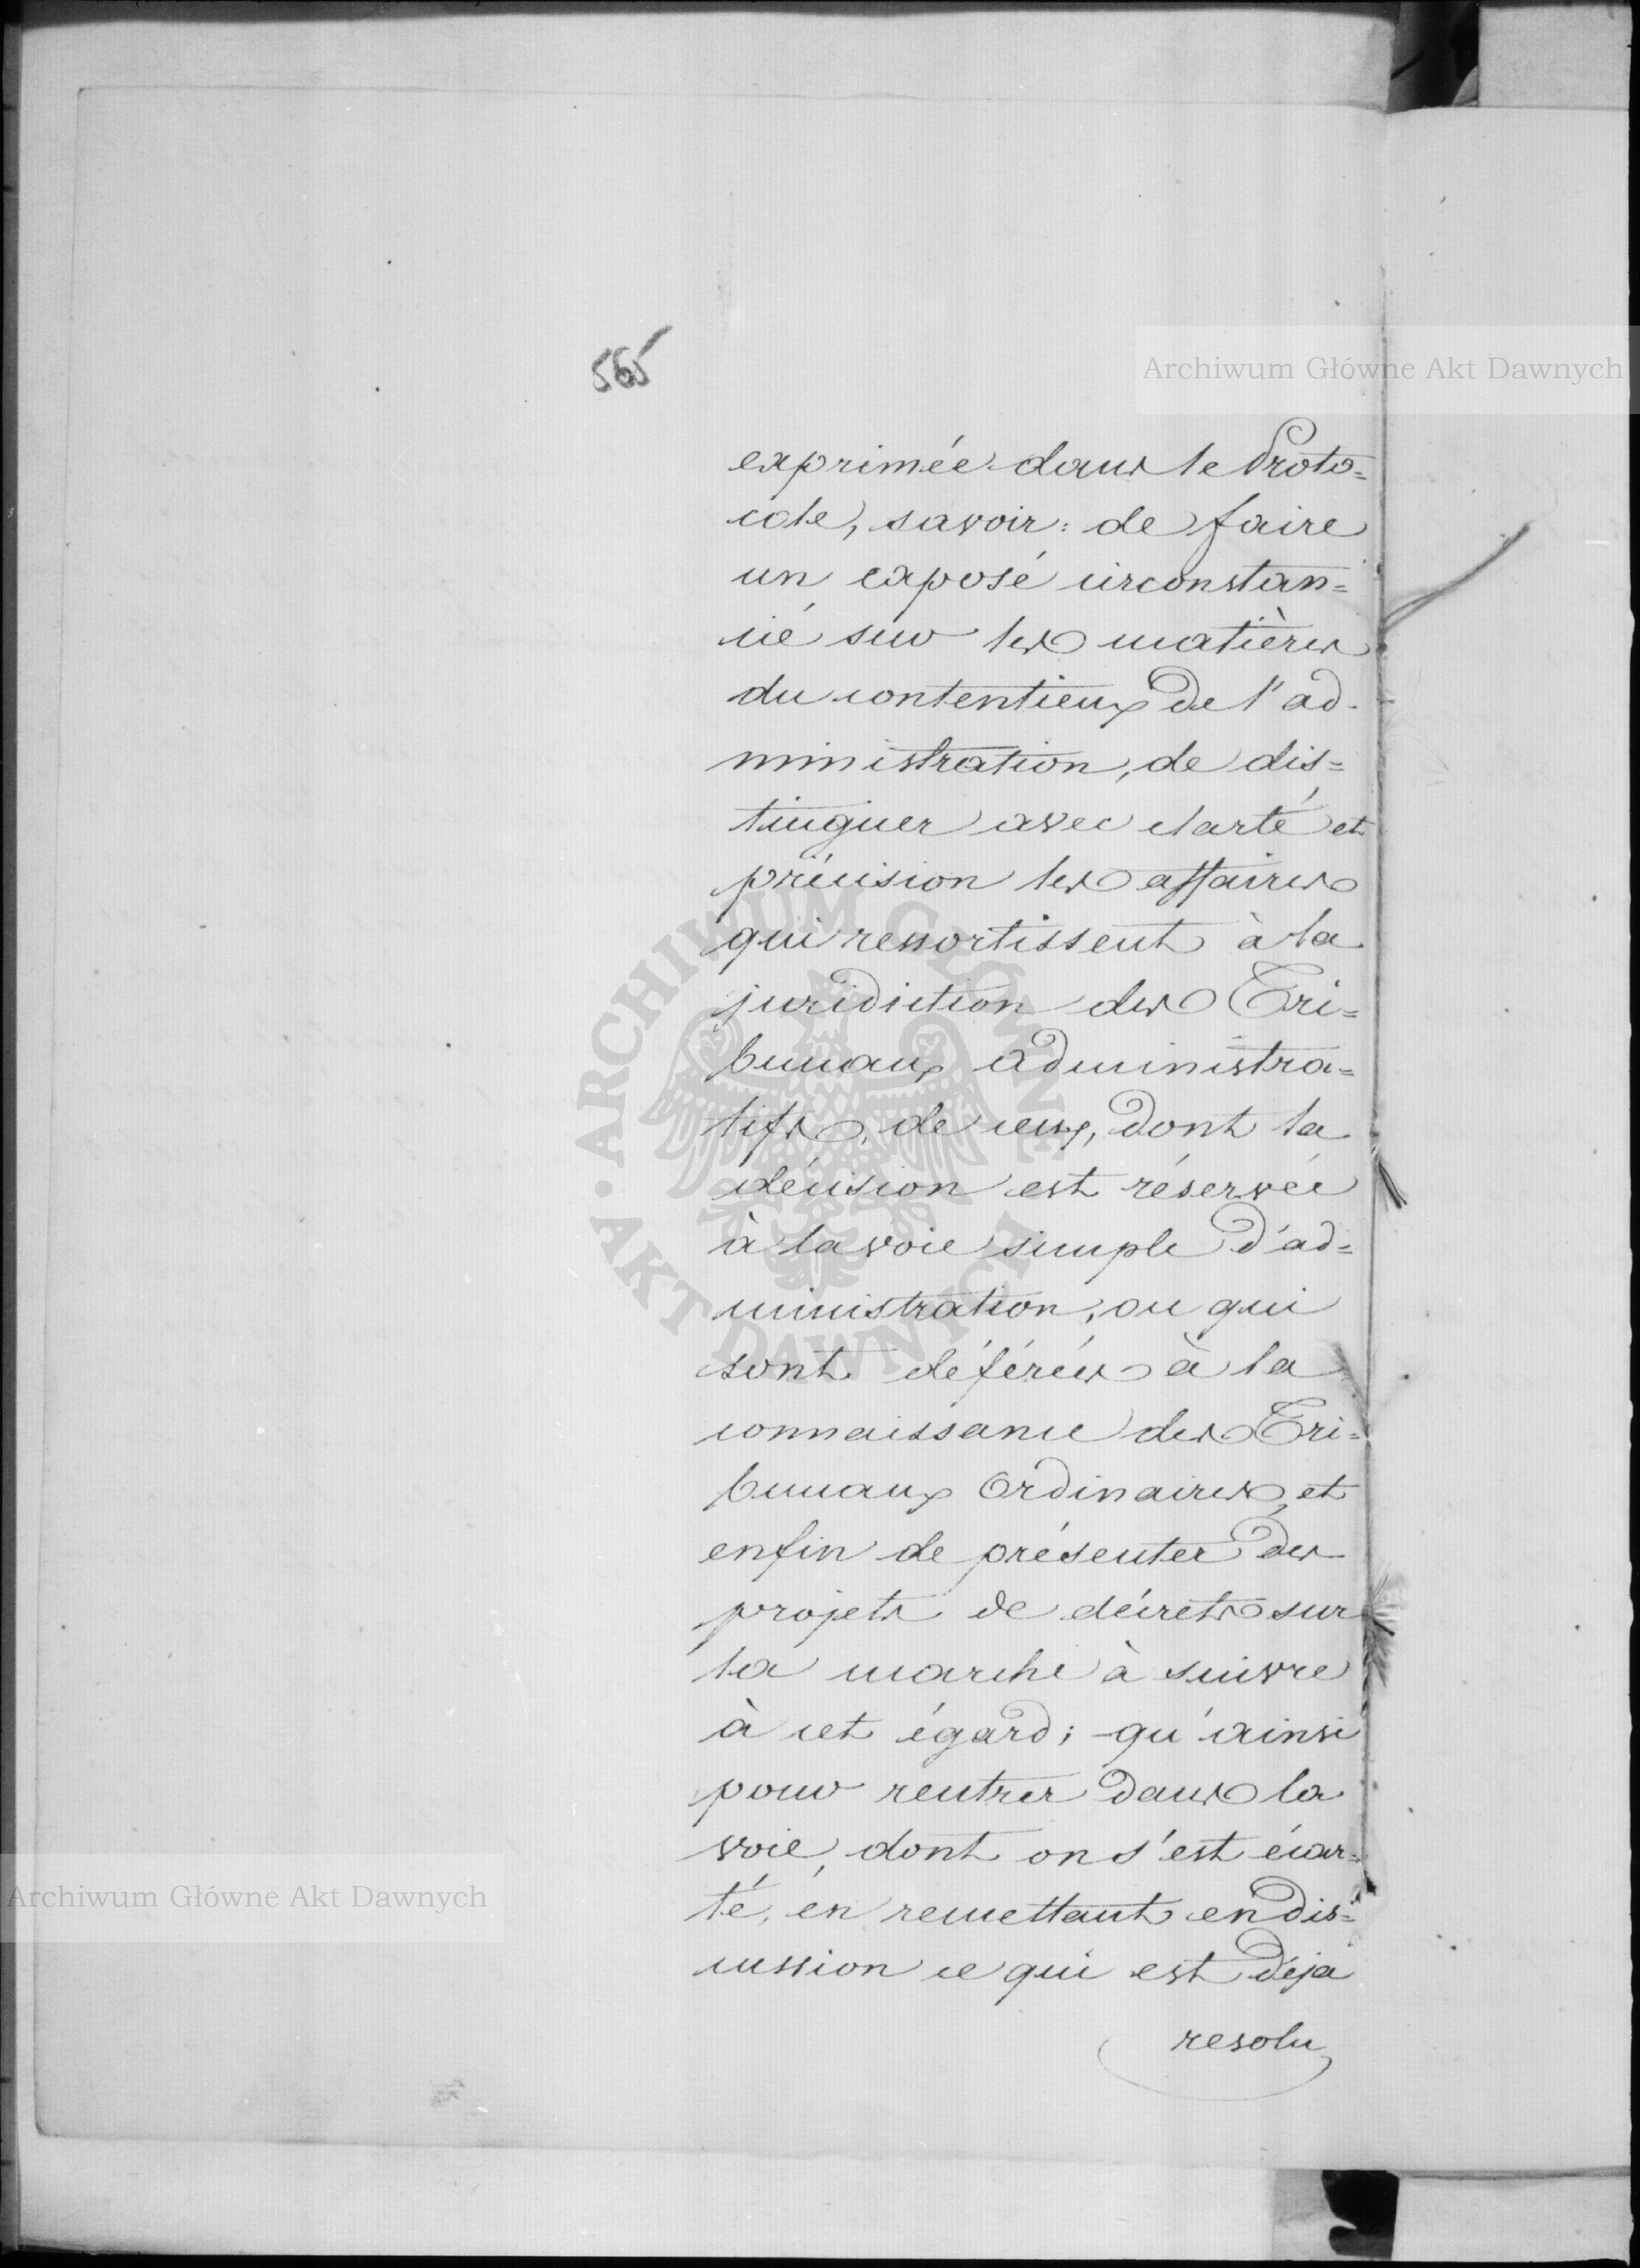 565
exprimée dans le Proto=
cole, savoir: de faire
un exposé circonstan=
cié sur les matières
du contentieux de l'ad-
ministration, de dis=
tinguer avec clarté et
précision les affaires
qui ressortissent à la
juridiction des Tri=
bunaux administra=
tifs, de ceux, dont la
décision est réservée
à la voie simple d'ad=
ministration, ou qui
sont déférées à la
connaissance des Tri=
bunaux Ordinaires, et
enfin de présenter des
projets de décrets sur
la marche à suivre
à cet égard; - qu'ainsi
pour rentrer dans la
voie, dont on s'est écar=
té, en remettant en dis=
cussion ce qui est déjà
resolu
Archiwum Główne Akt Dawnych
ARCHIWUM GŁÓWNE AKT DAWNYCH
Archiwum Główne Akt Dawnych